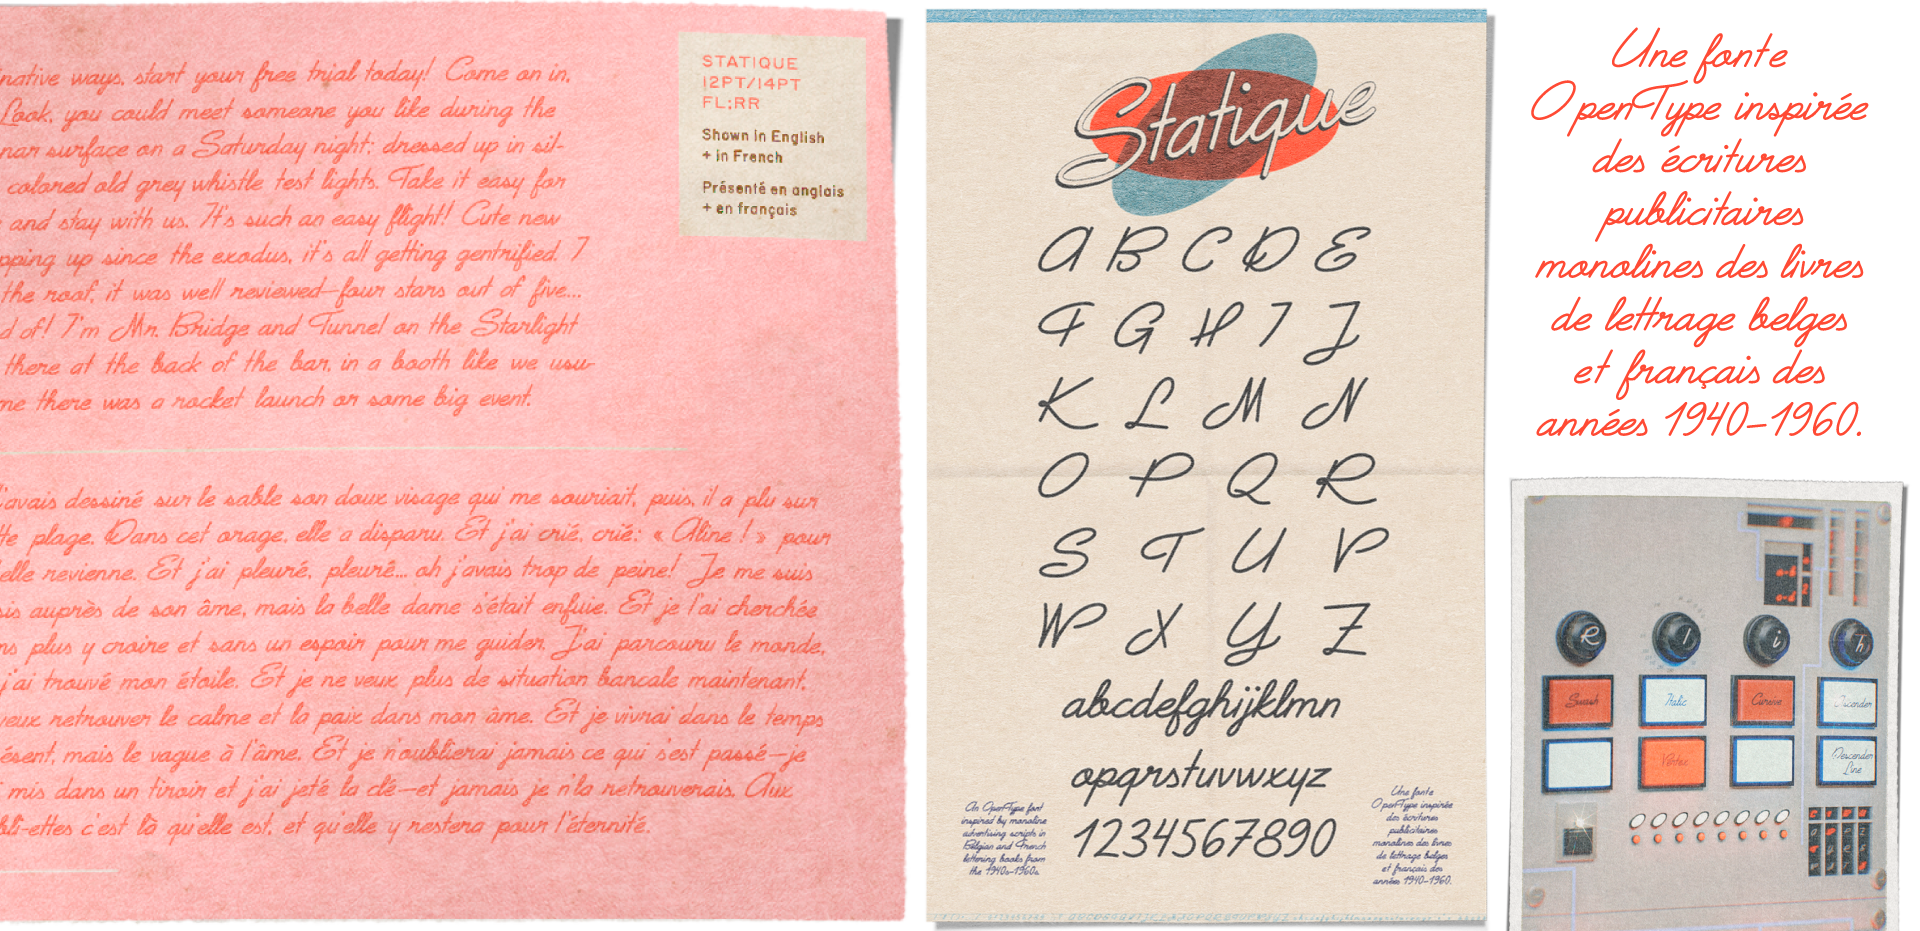 native ways, start your free trial today! Come on in,
Look, you could meet someone you like during the
nar surface on a Saturday night; dressed up in sil-
colored old grey whistle test lights. Take it easy for
and stay with us. It's such an easy flight! Cute new
pping up since the exodus, it's all getting gentrified. I
the roof, it was well reviewed—four stars out of five...
d of! I'm Mr. Bridge and Tunnel on the Starlight
there at the back of the bar, in a booth like we usu-
me there was a rocket launch or some big event.
STATIQUE
12PT/14PT
FL;RR
Shown in English
+ in French
Présenté en anglais
+ en français
j'avais dessiné sur le sable son doux visage qui me souriait, puis, il a plu sur
tte plage. Dans cet orage, elle a disparu. Et j'ai crié, crié: « Aline ! » pour
elle revienne. Et j'ai pleuré, pleuré... oh j'avais trop de peine! Je me suis
sis auprès de son âme, mais la belle dame s'était enfuie. Et je l'ai cherchée
ns plus y croire et sans un espoir pour me guider. J'ai parcouru le monde,
j'ai trouvé mon étoile. Et je ne veux plus de situation bancale maintenant,
veux retrouver le calme et la paix dans mon âme. Et je vivrai dans le temps
ésent, mais le vague à l'âme. Et je n'oublierai jamais ce qui s'est passé—je
mis dans un tiroir et j'ai jeté la clé—et jamais je n'la retrouverais. Aux
bli-ettes c'est là qu'elle est, et qu'elle y restera pour l'éternité.
Statique
A B C D E
F G H I J
K L M N
O P Q R
S T U V
W X Y Z
abcdefghijklmn
opqrstuvwxyz
1234567890
An OpenType font
inspired by monoline
advertising scripts in
Belgian and French
lettering books from
the 1940s–1960s.
Une fonte
OpenType inspirée
des écritures
publicitaires
monolines des livres
de lettrage belges
et français des
années 1940–1960.
Une fonte
OpenType inspirée
des écritures
publicitaires
monolines des livres
de lettrage belges
et français des
années 1940–1960.
R l i Th
Swash Italic Cursive Ascender
Vertec Descender
Line